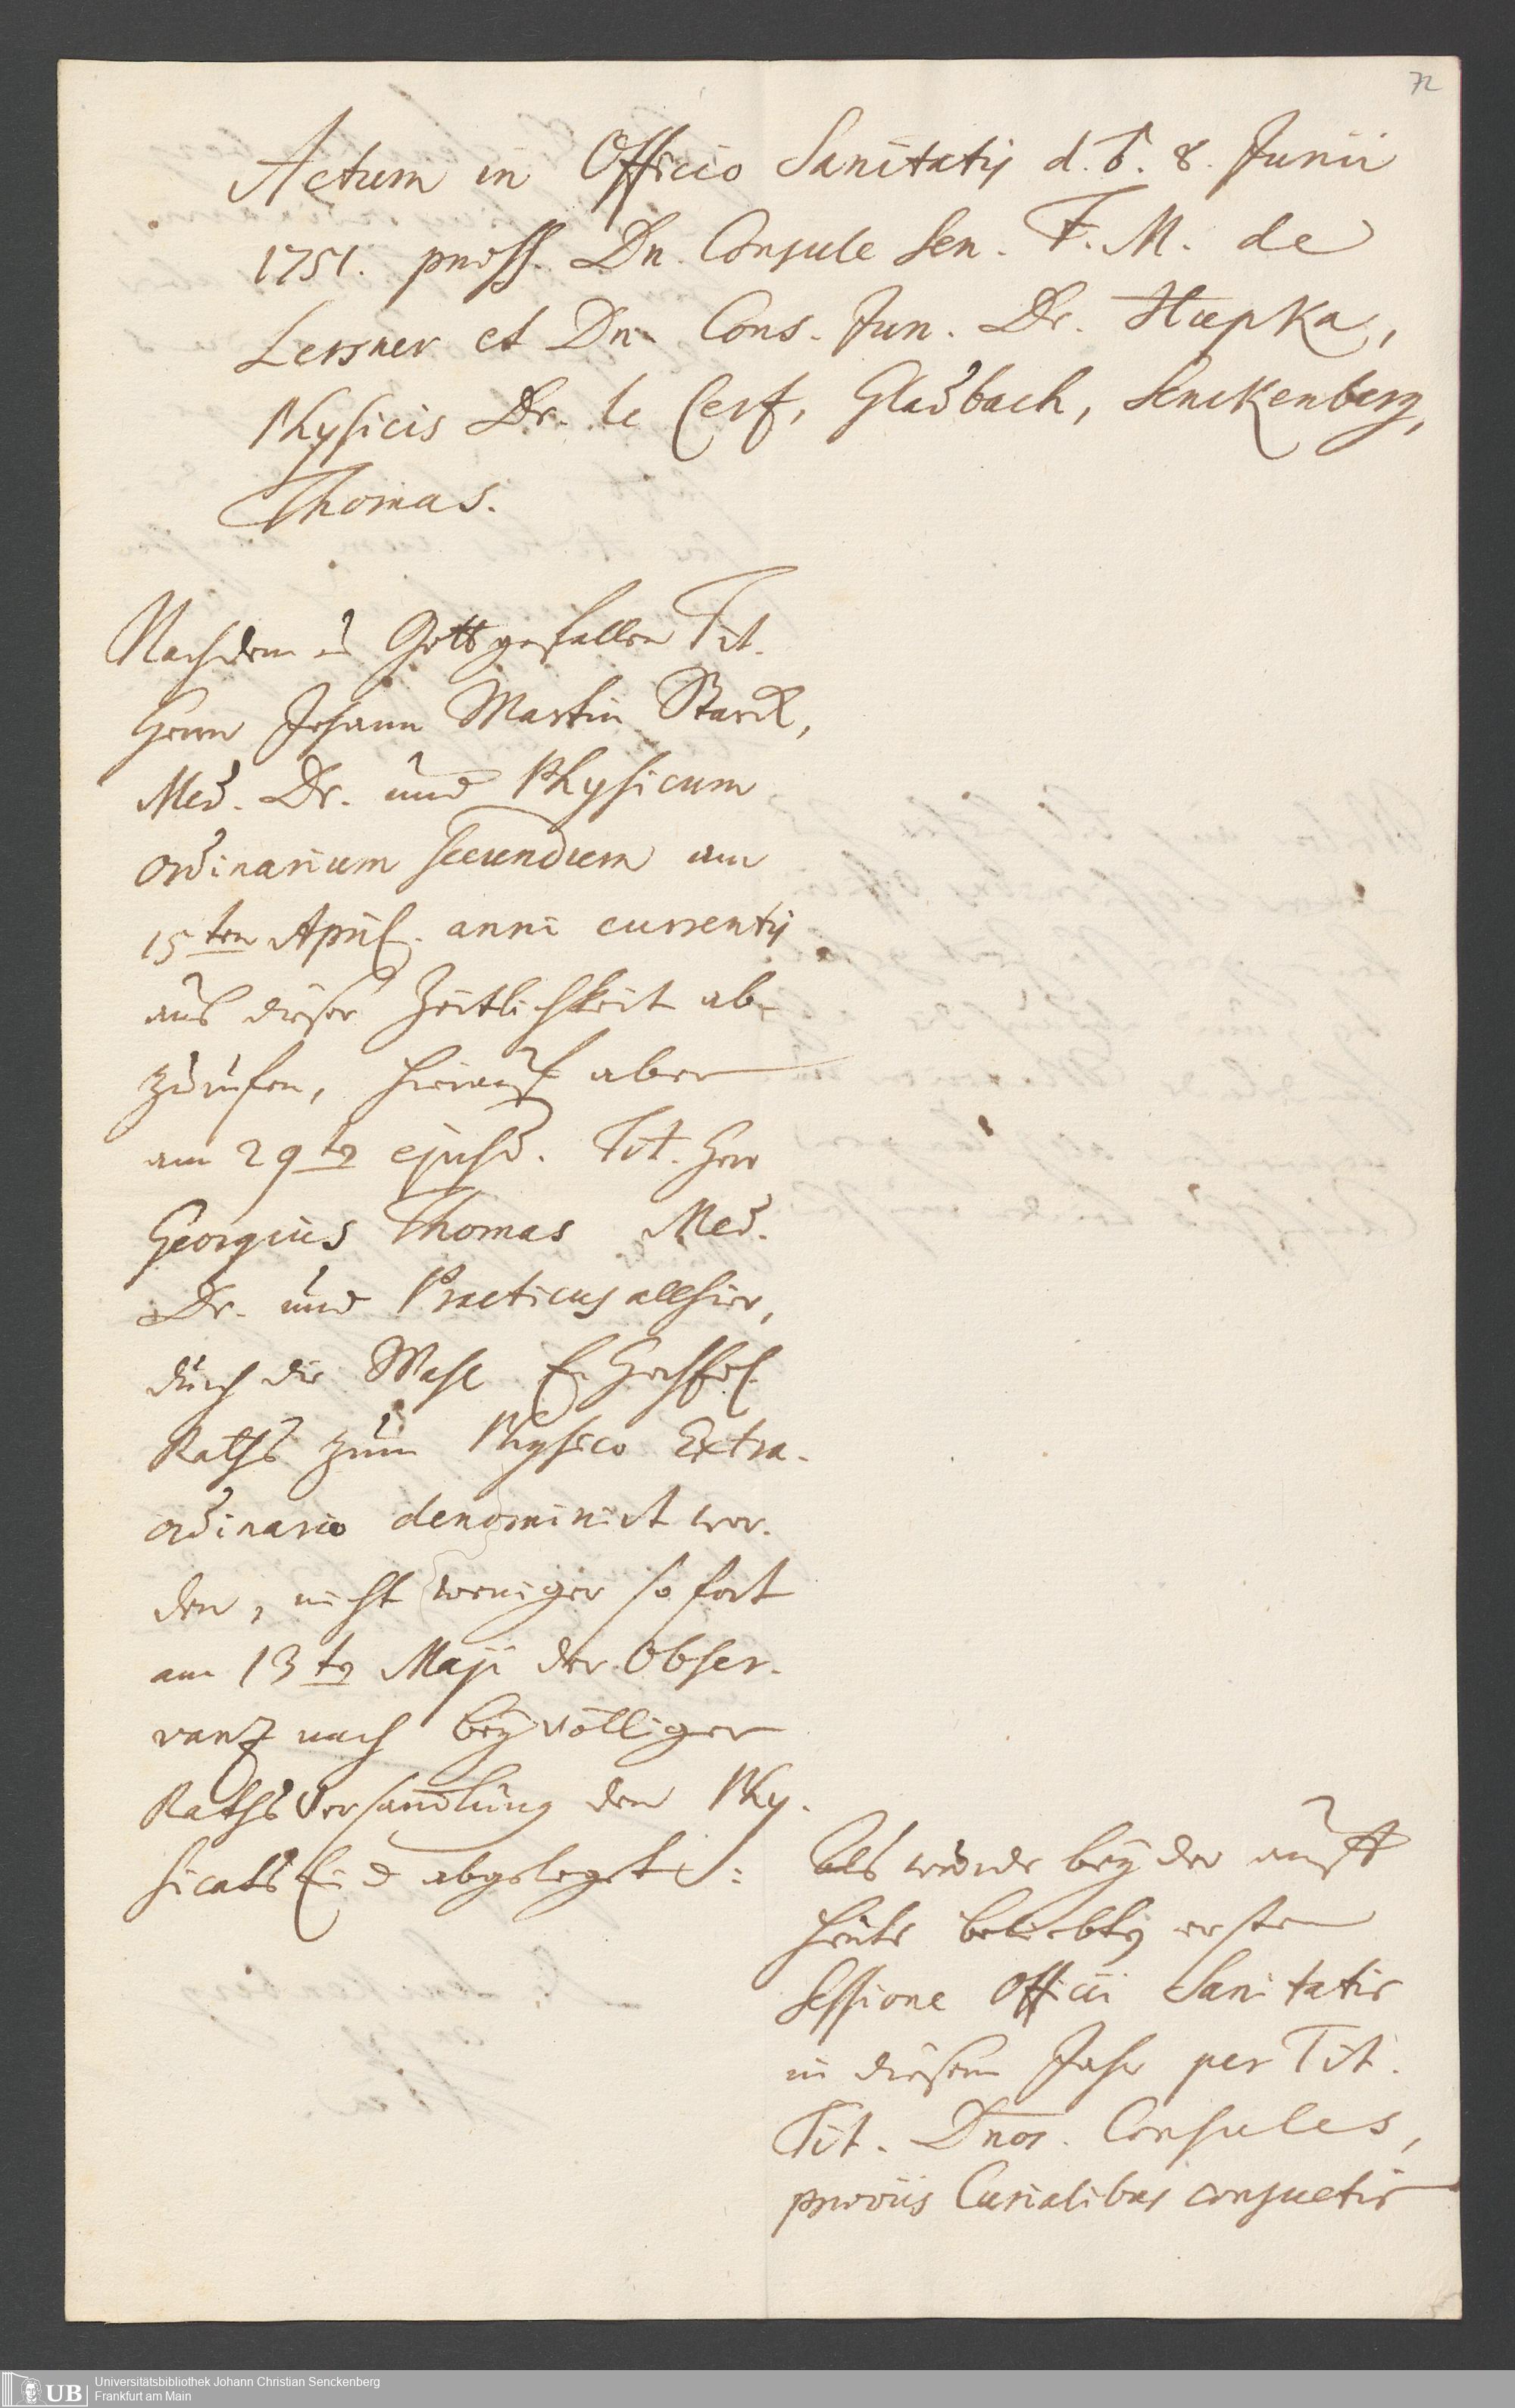 72
Actum in Officio Sanitatis d. 8. Junii
1751. præss. Dn. Consule Sen. F. M. de
Lersner et Dn. Cons. Jun. Dr. Hupka,
Physicis Dr. le Cerf, Gladbach, Senckenberg,
Thomas.
Nachdem es Gott gefallen Tit.
Herrn Johann Martin Starck,
Med. Dr. und Physicum
ordinarium secundum am
15ten April. anni currentis
aus dieser Zeitlichkeit ab-
zurufen, hierauf aber
am 29ten ejusd. Tit. Herr
Georgius Thomas Med.
Dr. und Practicus allhier,
durch die Wahl E. Hochedl.
Raths zum Physico Extra-
ordinario denominirt wor-
den, nicht weniger sofort
am 13ten Maji der Obser-
vanz nach bey völliger
Raths Versamlung den Phy-
sicats Eid abgelegt:
Als wurde bey der auff
heute beliebten ersten
Sessione Officii Sanitatis
in diesem Jahr per Tit.
Tit. Dnos. Consules,
præviis Curialibus consuetis
UB
Universitätsbibliothek Johann Christian Senckenberg
Frankfurt am Main